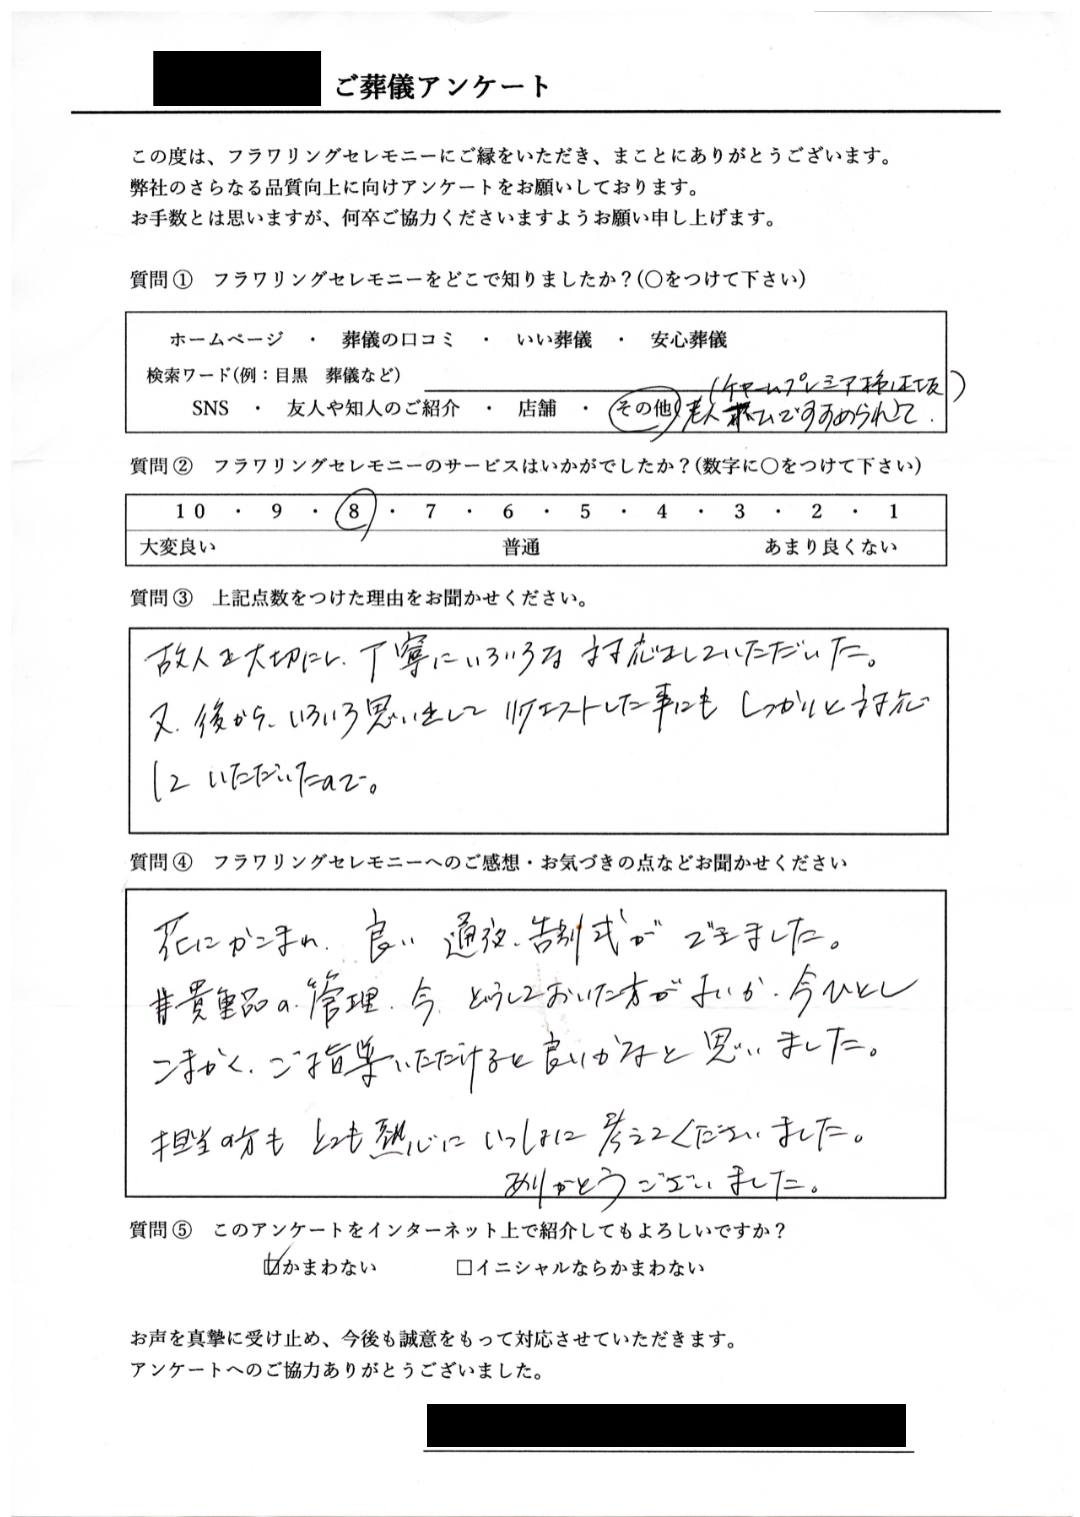 ご葬儀アンケート
この度は、フラワリングセレモニーにご縁をいただき、まことにありがとうございます。
弊社のさらなる品質向上に向けアンケートをお願いしております。
お手数とは思いますが、何卒ご協力くださいますようお願い申し上げます。
質問① フラワリングセレモニーをどこで知りましたか？(〇をつけて下さい)
ホームページ ・ 葬儀の口コミ ・ いい葬儀 ・ 安心葬儀
検索ワード(例：目黒 葬儀など)
(チャームプレミア柿の木坂)
SNS ・ 友人や知人のご紹介 ・ 店舗 ・ その他 老人ホームですすめられて.
質問② フラワリングセレモニーのサービスはいかがでしたか？(数字に〇をつけて下さい)
10 ・ 9 ・ 8 ・ 7 ・ 6 ・ 5 ・ 4 ・ 3 ・ 2 ・ 1
大変良い 普通 あまり良くない
質問③ 上記点数をつけた理由をお聞かせください。
故人を大切にし、丁寧にいろいろな対応をしていただいた。
又、後から、いろいろ思い出してリクエストした事にもしっかりと対応
していただいたので。
質問④ フラワリングセレモニーへのご感想・お気づきの点などお聞かせください
花にかこまれ、良い通夜、告別式ができました。
貴重品の管理、今、どうしておいた方がよいか、今ひとし
こまかく、ご指導いただけると良いかなと思いました。
担当の方もとても熱心にいっしょに考えてくださいました。
ありがとうございました。
質問⑤ このアンケートをインターネット上で紹介してもよろしいですか？
☑かまわない □イニシャルならかまわない
お声を真摯に受け止め、今後も誠意をもって対応させていただきます。
アンケートへのご協力ありがとうございました。